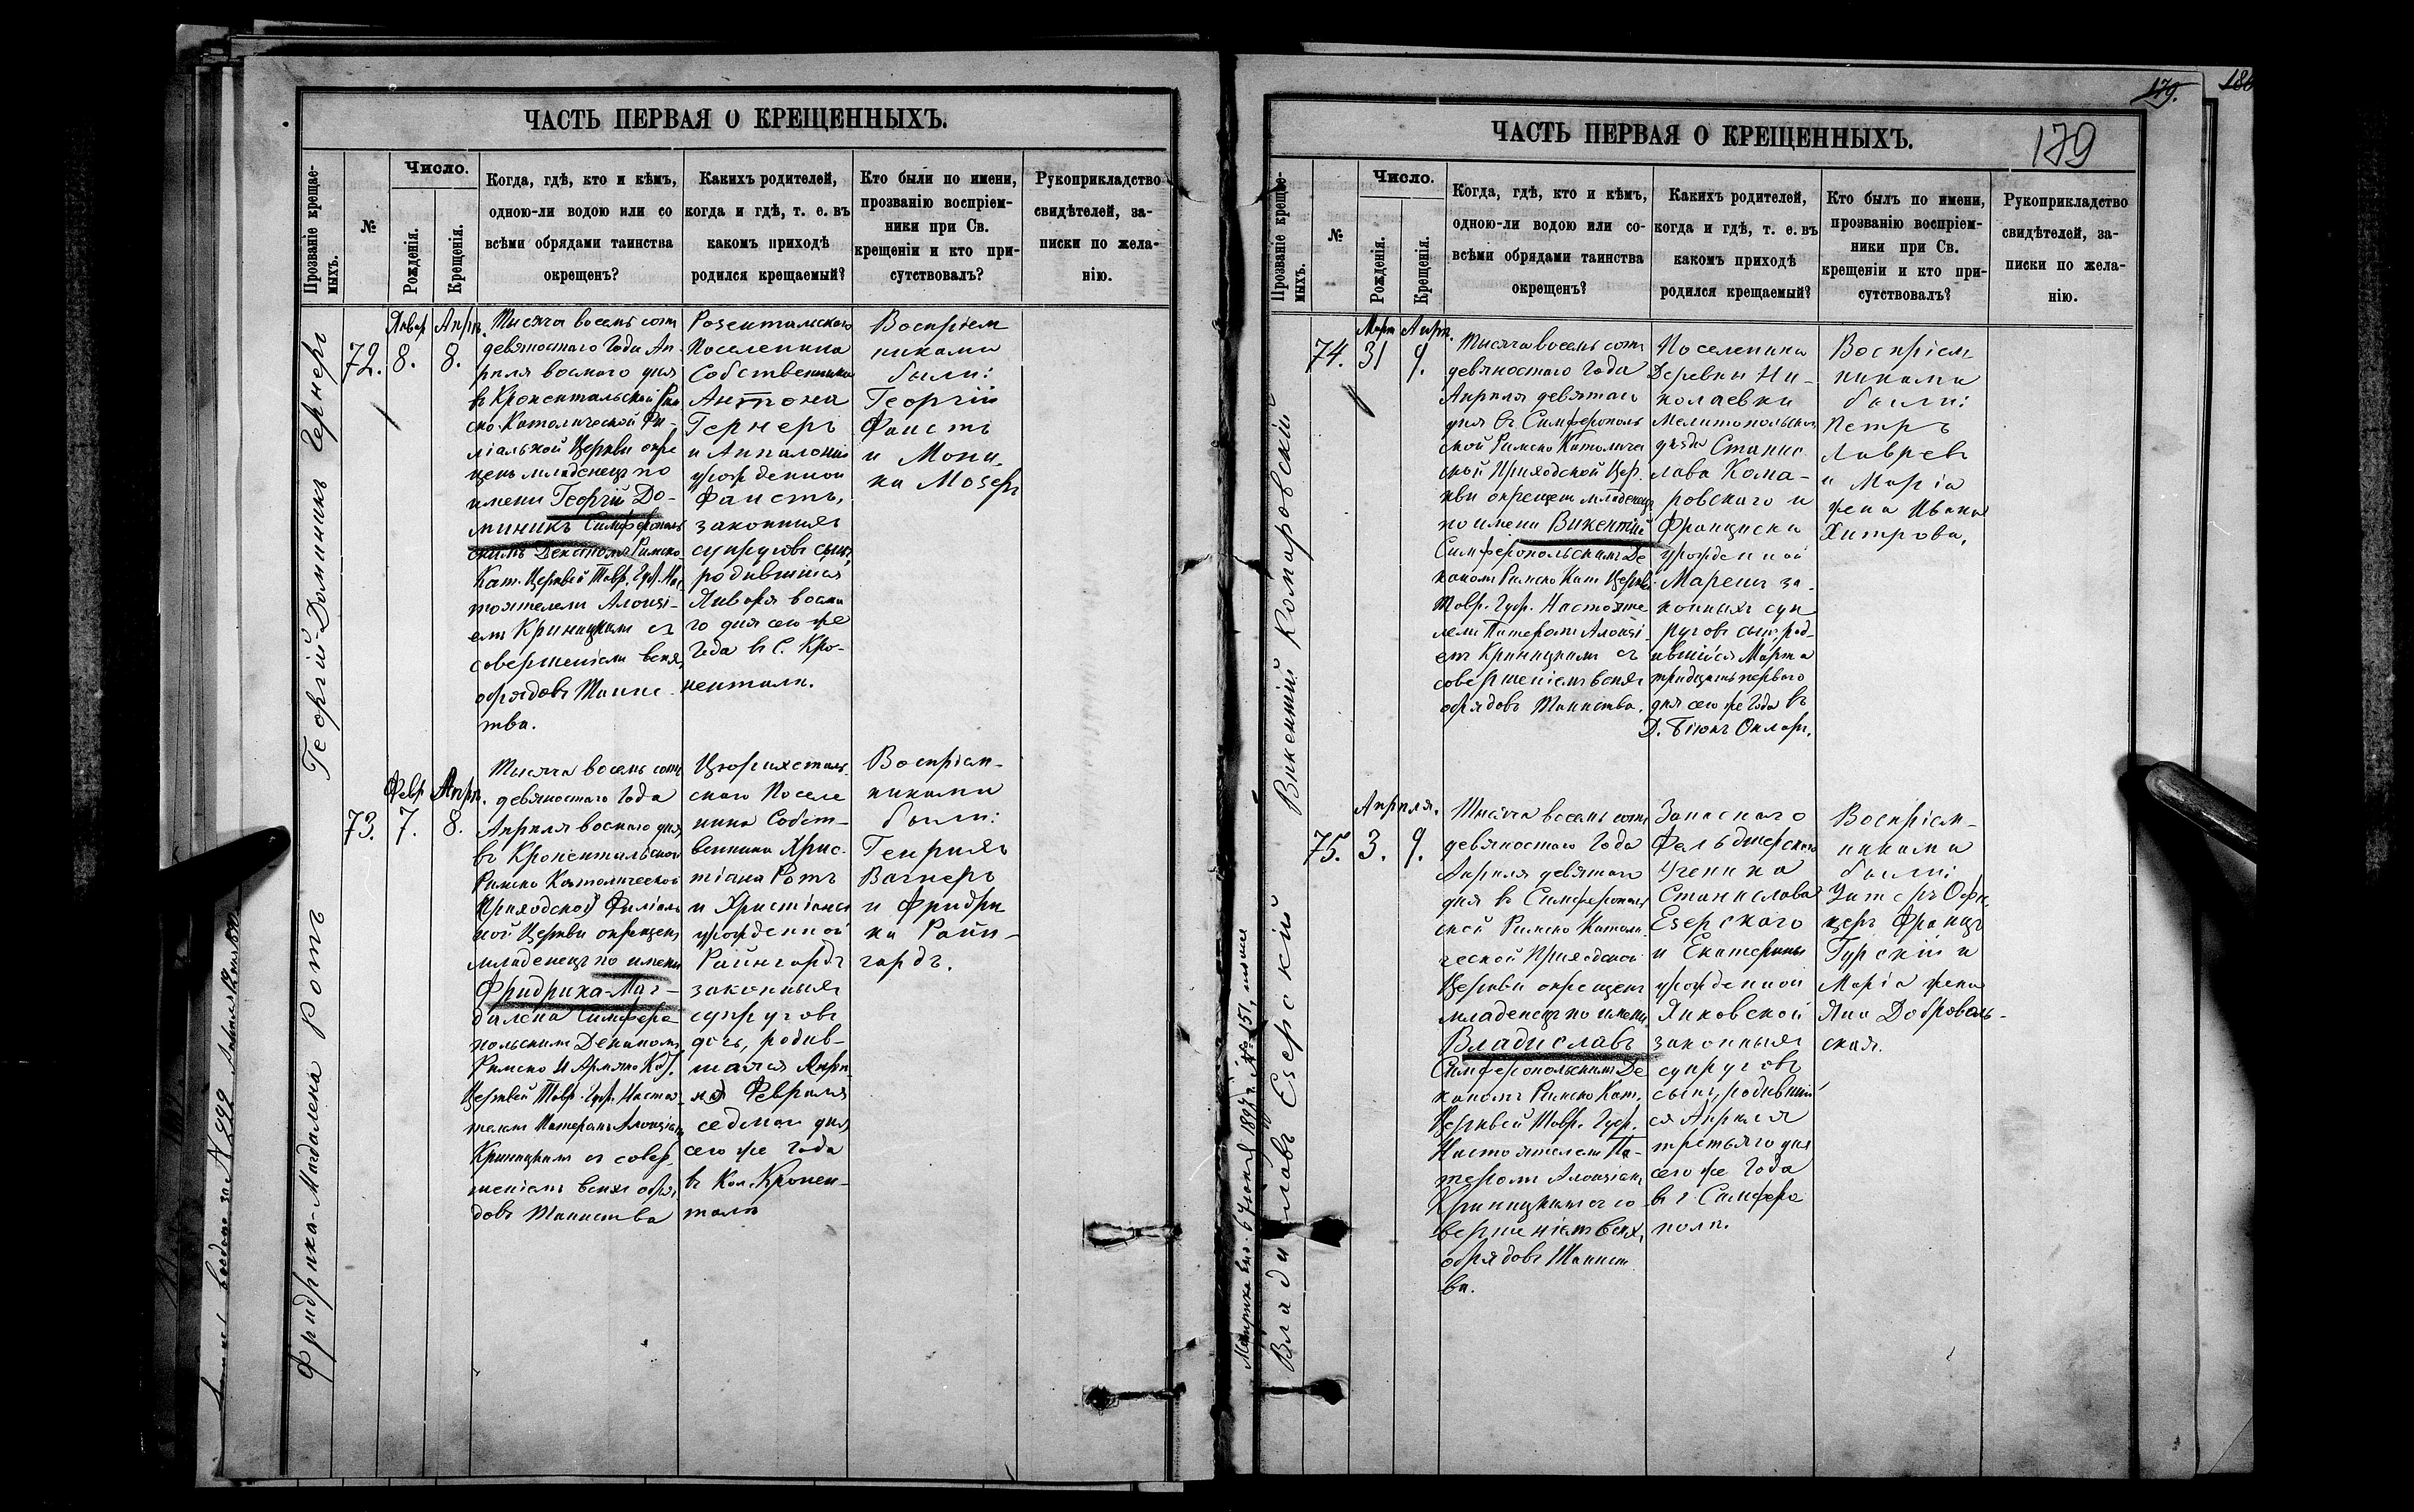 ЧАСТЬ ПЕРВАЯ О КРЕЩЕННЫХЪ.
Прозваніе крещае-
мыхъ.
№
Число.
Рожденія.
Крещенія.
Когда, гдѣ, кто и кѣмъ,
одною-ли водою или со
всѣми обрядами таинства
окрещенъ?
Каихъ родителей,
когда и гдѣ, т. е. въ
какомъ приходѣ
родился крещаемый?
Кто были по имени,
прозванію воспріем-
ники при Св.
крещеніи и кто при-
сутствовалъ?
Рукоприкладство
свидѣтелей, за-
писки по жела-
нію.
Георгій-Доминикъ Гернеръ
72.
Январ
8.
Апрл.
8.
Тысяча восемь сотъ
девяностаго Года Ап-
рѣля восмого дня
въ Кронентальской Рим
ско-Католической Фи-
ліальной Церкви окре
щенъ младенецъ по
имени Георгій До-
миникъ Симферополь
скимъ Деканомъ Римско-
Кат. Церквей Тавр. Губ. Нас
тоятелемъ Алоизі-
емъ Криницкимъ съ
совершеніемъ всѣхъ
обрядовъ Таинс-
тва.
Розентальскаго
Поселенина
Собственника
Антона
Гернеръ
и Аппалоніи
урожденной
Фаистъ,
законныхъ
супруговъ сынъ,
родившійся
Января восма
го дня сего же
Года въ С. Кро-
ненталь.
Воспріем
никами
были:
Георгій
Фаистъ
и Мони-
ка Мозеръ
Фридрика-Магдалена Ротъ
73.
Февр
7.
Апрл.
8.
Тысяча восемь сотъ
девяностаго Года
Апрѣля восмаго дня
въ Кронентальской
Римско Католической
Приходской Филіаль
ной Церкви окрещенъ
младенецъ по имени
Фридрика-Маг-
далена Симферо
польскимъ Деканомъ
Римско и Армяно Кат.
Церквей Тавр. Губ. Настоя
телемъ Патеромъ Алоизіемъ
Криницкимъ съ совер-
шеніемъ всѣхъ обря-
довъ Таинства
Цюрихсталь-
скаго Поселе
нина Собст-
венника Хрис-
тіана Ротъ
и Христіаны
урожденной
Раингардъ
законныхъ
супруговъ
дочь, родив-
шаяся
Февраля
седмаго дня
сего же Года
въ Кол. Кронен-
таль
Воспріем-
никами
были:
Генрихъ
Вагнеръ
и Фридри
ка Раин-
гардъ.
179.
179
ЧАСТЬ ПЕРВАЯ О КРЕЩЕННЫХЪ.
Прозваніе крещае-
мыхъ.
№
Число.
Рожденія.
Крещенія.
Когда, гдѣ, кто и кѣмъ,
одною-ли водою или со-
всѣми обрядами таинства
окрещенъ?
Какихъ родителей,
когда и гдѣ, т. е. въ
какомъ приходѣ
родился крещаемый?
Кто былъ по имени,
прозванію воспріем-
ники при Св.
крещеніи и кто при-
сутствовалъ?
Рукоприкладство
свидѣтелей, за-
писки по жела-
нію.
Викентій Комаровскій
74.
Март
31
Апрл.
9.
Тысяча восемь сотъ
девяностаго Года
Апрѣля девятаго
дня въ Симферополь
ской Римско Католиче
ской Приходской Цер-
кви окрещенъ младенецъ
по имени Викентій
Симферопольскимъ Де
каномъ Римско Кат Церквей
Тавр. Губ. Настояте
лемъ Патеромъ Алоизі-
емъ Криницкимъ съ
совершеніемъ всѣхъ
обрядовъ Таинства.
Поселенина
Деревни Ни-
колаевки
Мелитопольскаго
уѣзда Станис
лава Кома-
ровскаго и
Франциски
урожденной
Марешъ за-
конныхъ суп
руговъ сынъ, род-
ившійся Марта
тридцать перваго
дня сего же Года въ
Д. Біюкъ Онларъ.
Воспріем
никами
были:
Петръ
Лавревъ
и Марія
жена Ивана
Хитрова.
Владиславъ Езерскій
Метрика 6 Іюня 1897 г. № 151
75.
Апрѣля.
3.
9.
Тысяча восемь сотъ
девяностаго Года
Апрѣля девятаго
дня въ Симферополь
ской Римско Католи
ческой Приходской
Церкви окрещенъ
младенецъ по имени
Владиславъ
Симферопольскимъ Де
каномъ Римско Кат.
Церквей Тавр. Губ.
Настоятелемъ Па-
теромъ Алоизіемъ
Криницкимъ съ со
вершеніемъ всѣхъ
обрядовъ Таинст
ва.
Запаснаго
Фельдшерскаго
Ученика
Станислава
Езерскаго
и Екатерины
урожденной
Янковской
законныхъ
супруговъ
сынъ, родившій
ся Апрѣля
третьяго дня
сего же Года
въ г. Симферо
полѣ.
Воспріем-
никами
были:
Унтеръ Офи-
церъ Францъ
Гурскій и
Марія жена
Яна Доброволь-
ская.